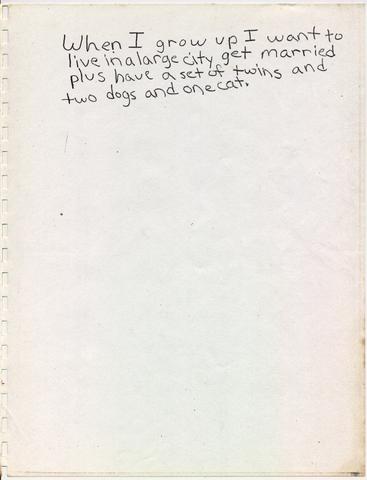 When I grow up I want to
live in a large city get married
plus have a set of twins and
two dogs and one cat.